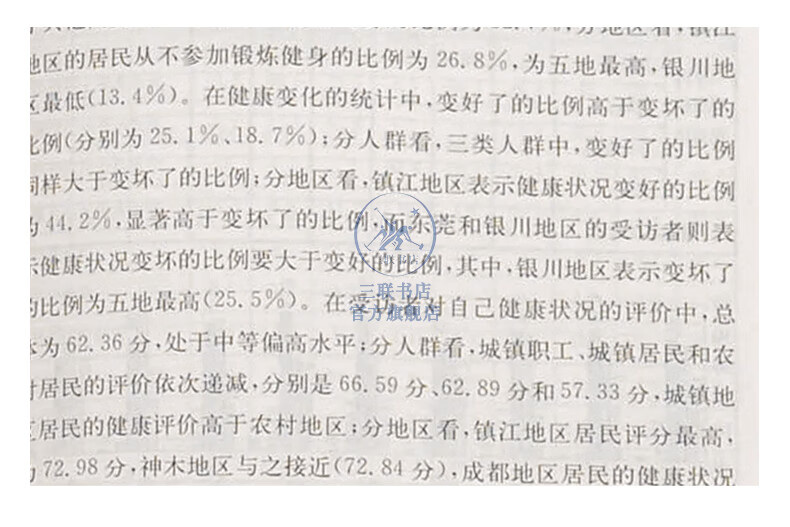 地区的居民从不参加锻炼健身的比例为 26.8%,为五地最高,银川地
区最低(13.4%)。在健康变化的统计中,变好了的比例高于变坏了的
比例(分别为 25.1%、18.7%);分人群看,三类人群中,变好了的比例
同样大于变坏了的比例;分地区看,镇江地区表示健康状况变好的比例
为 44.2%,显著高于变坏了的比例,而东莞和银川地区的受访者则表
示健康状况变坏的比例要大于变好的比例,其中,银川地区表示变坏了
的比例为五地最高(25.5%)。在受访者对自己健康状况的评价中,总
体为 62.36 分,处于中等偏高水平;分人群看,城镇职工、城镇居民和农
村居民的评价依次递减,分别是 66.59 分、62.89 分和 57.33 分,城镇地
区居民的健康评价高于农村地区;分地区看,镇江地区居民评分最高,
72.98 分,神木地区与之接近(72.84 分),成都地区居民的健康状况
三联书店
官方旗舰店